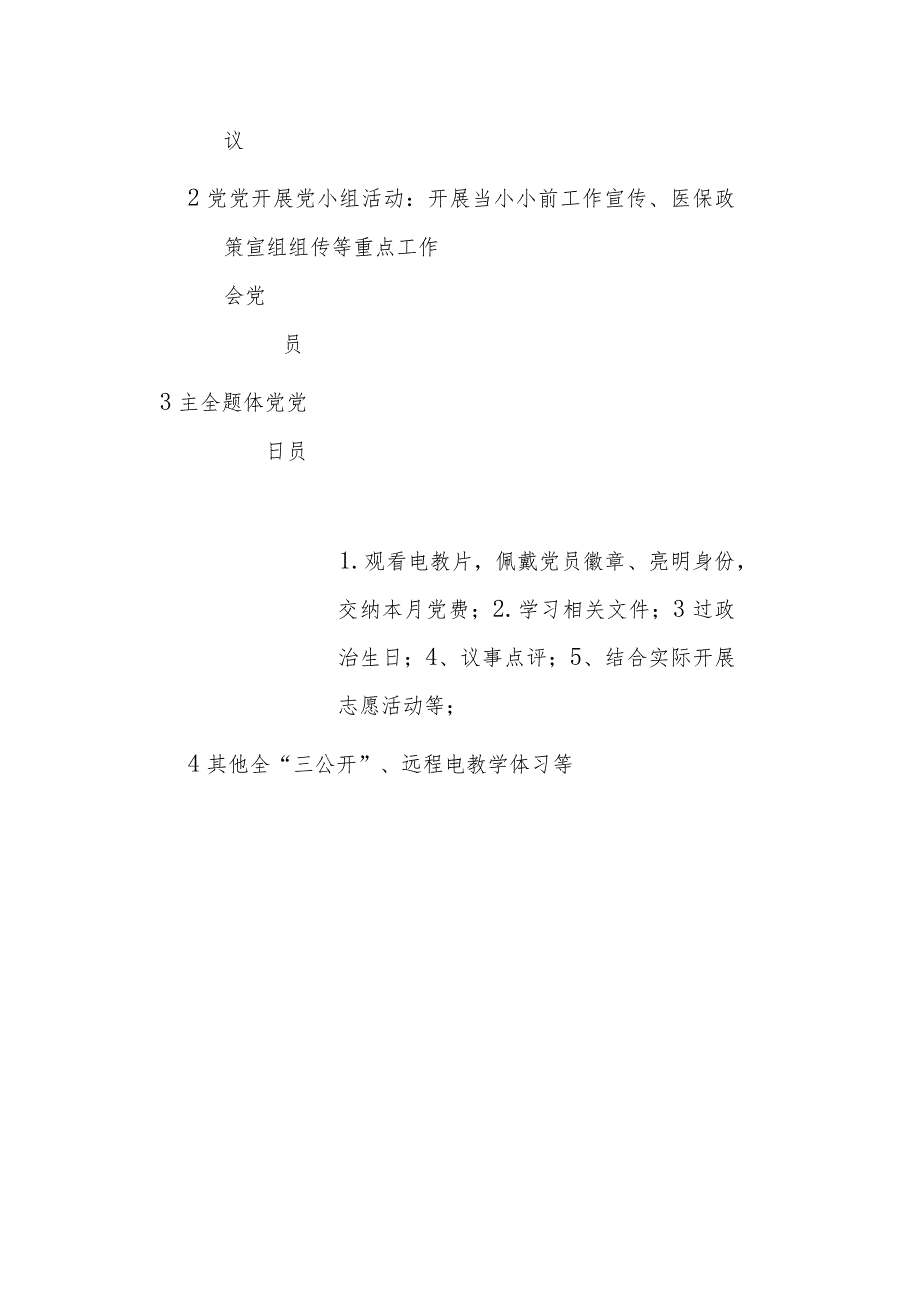 议
2党党开展党小组活动：开展当小小前工作宣传、医保政
策宣组组传等重点工作
会党
员
3主全题体党党
日员
1.观看电教片，佩戴党员徽章、亮明身份，
交纳本月党费；2.学习相关文件；3过政
治生日；4、议事点评；5、结合实际开展
志愿活动等；
4其他全“三公开”、远程电教学体习等